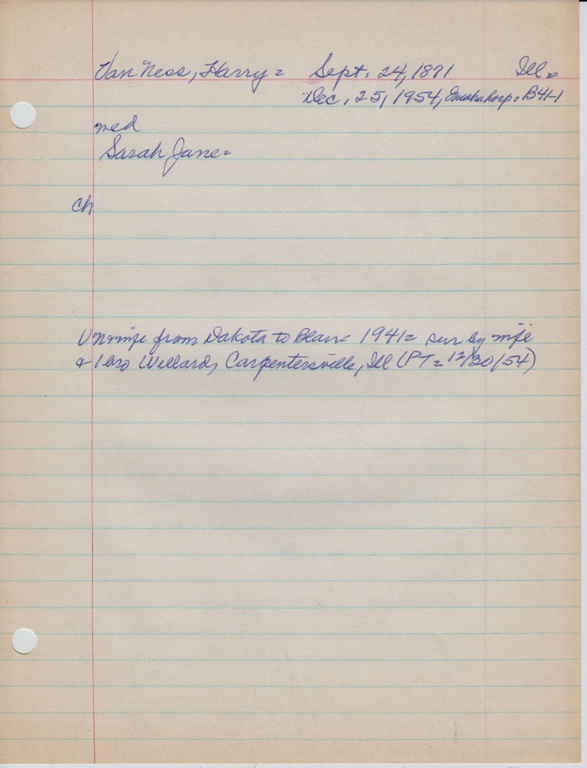 Van Ness, Harry = Sept. 24, 1871 Ill =
Dec. 25, 1954, Omaha hosp = B4H-1
med
Sarah Jane =
ch
V n & wife from Dakota to Blair = 1941 = sur by wife
& 1 bro Willard, Carpentersville, Ill (PT = 12/30/54)